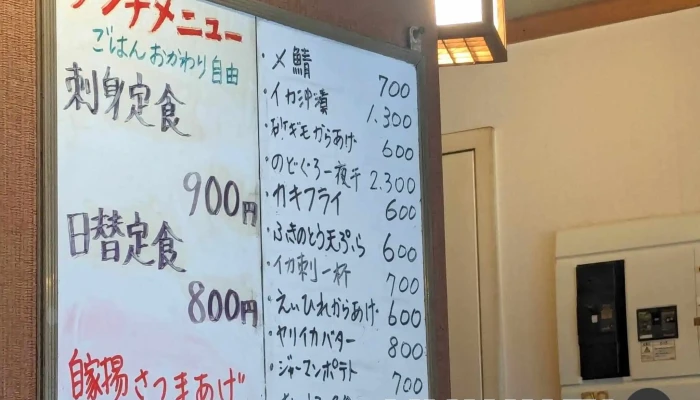 ランチメニュー
ごはんおかわり自由
刺身定食
900円
日替定食
800円
自家揚さつまあげ
・〆鯖 700
・イカ沖漬 1.300
・砂ギモからあげ 600
・のどぐろ一夜干 2.300
・カキフライ 600
・ふきのとう天ぷら 600
・イカ刺一杯 700
・えいひれからあげ 600
・ヤリイカバター 800
・ジャーマンポテト 700